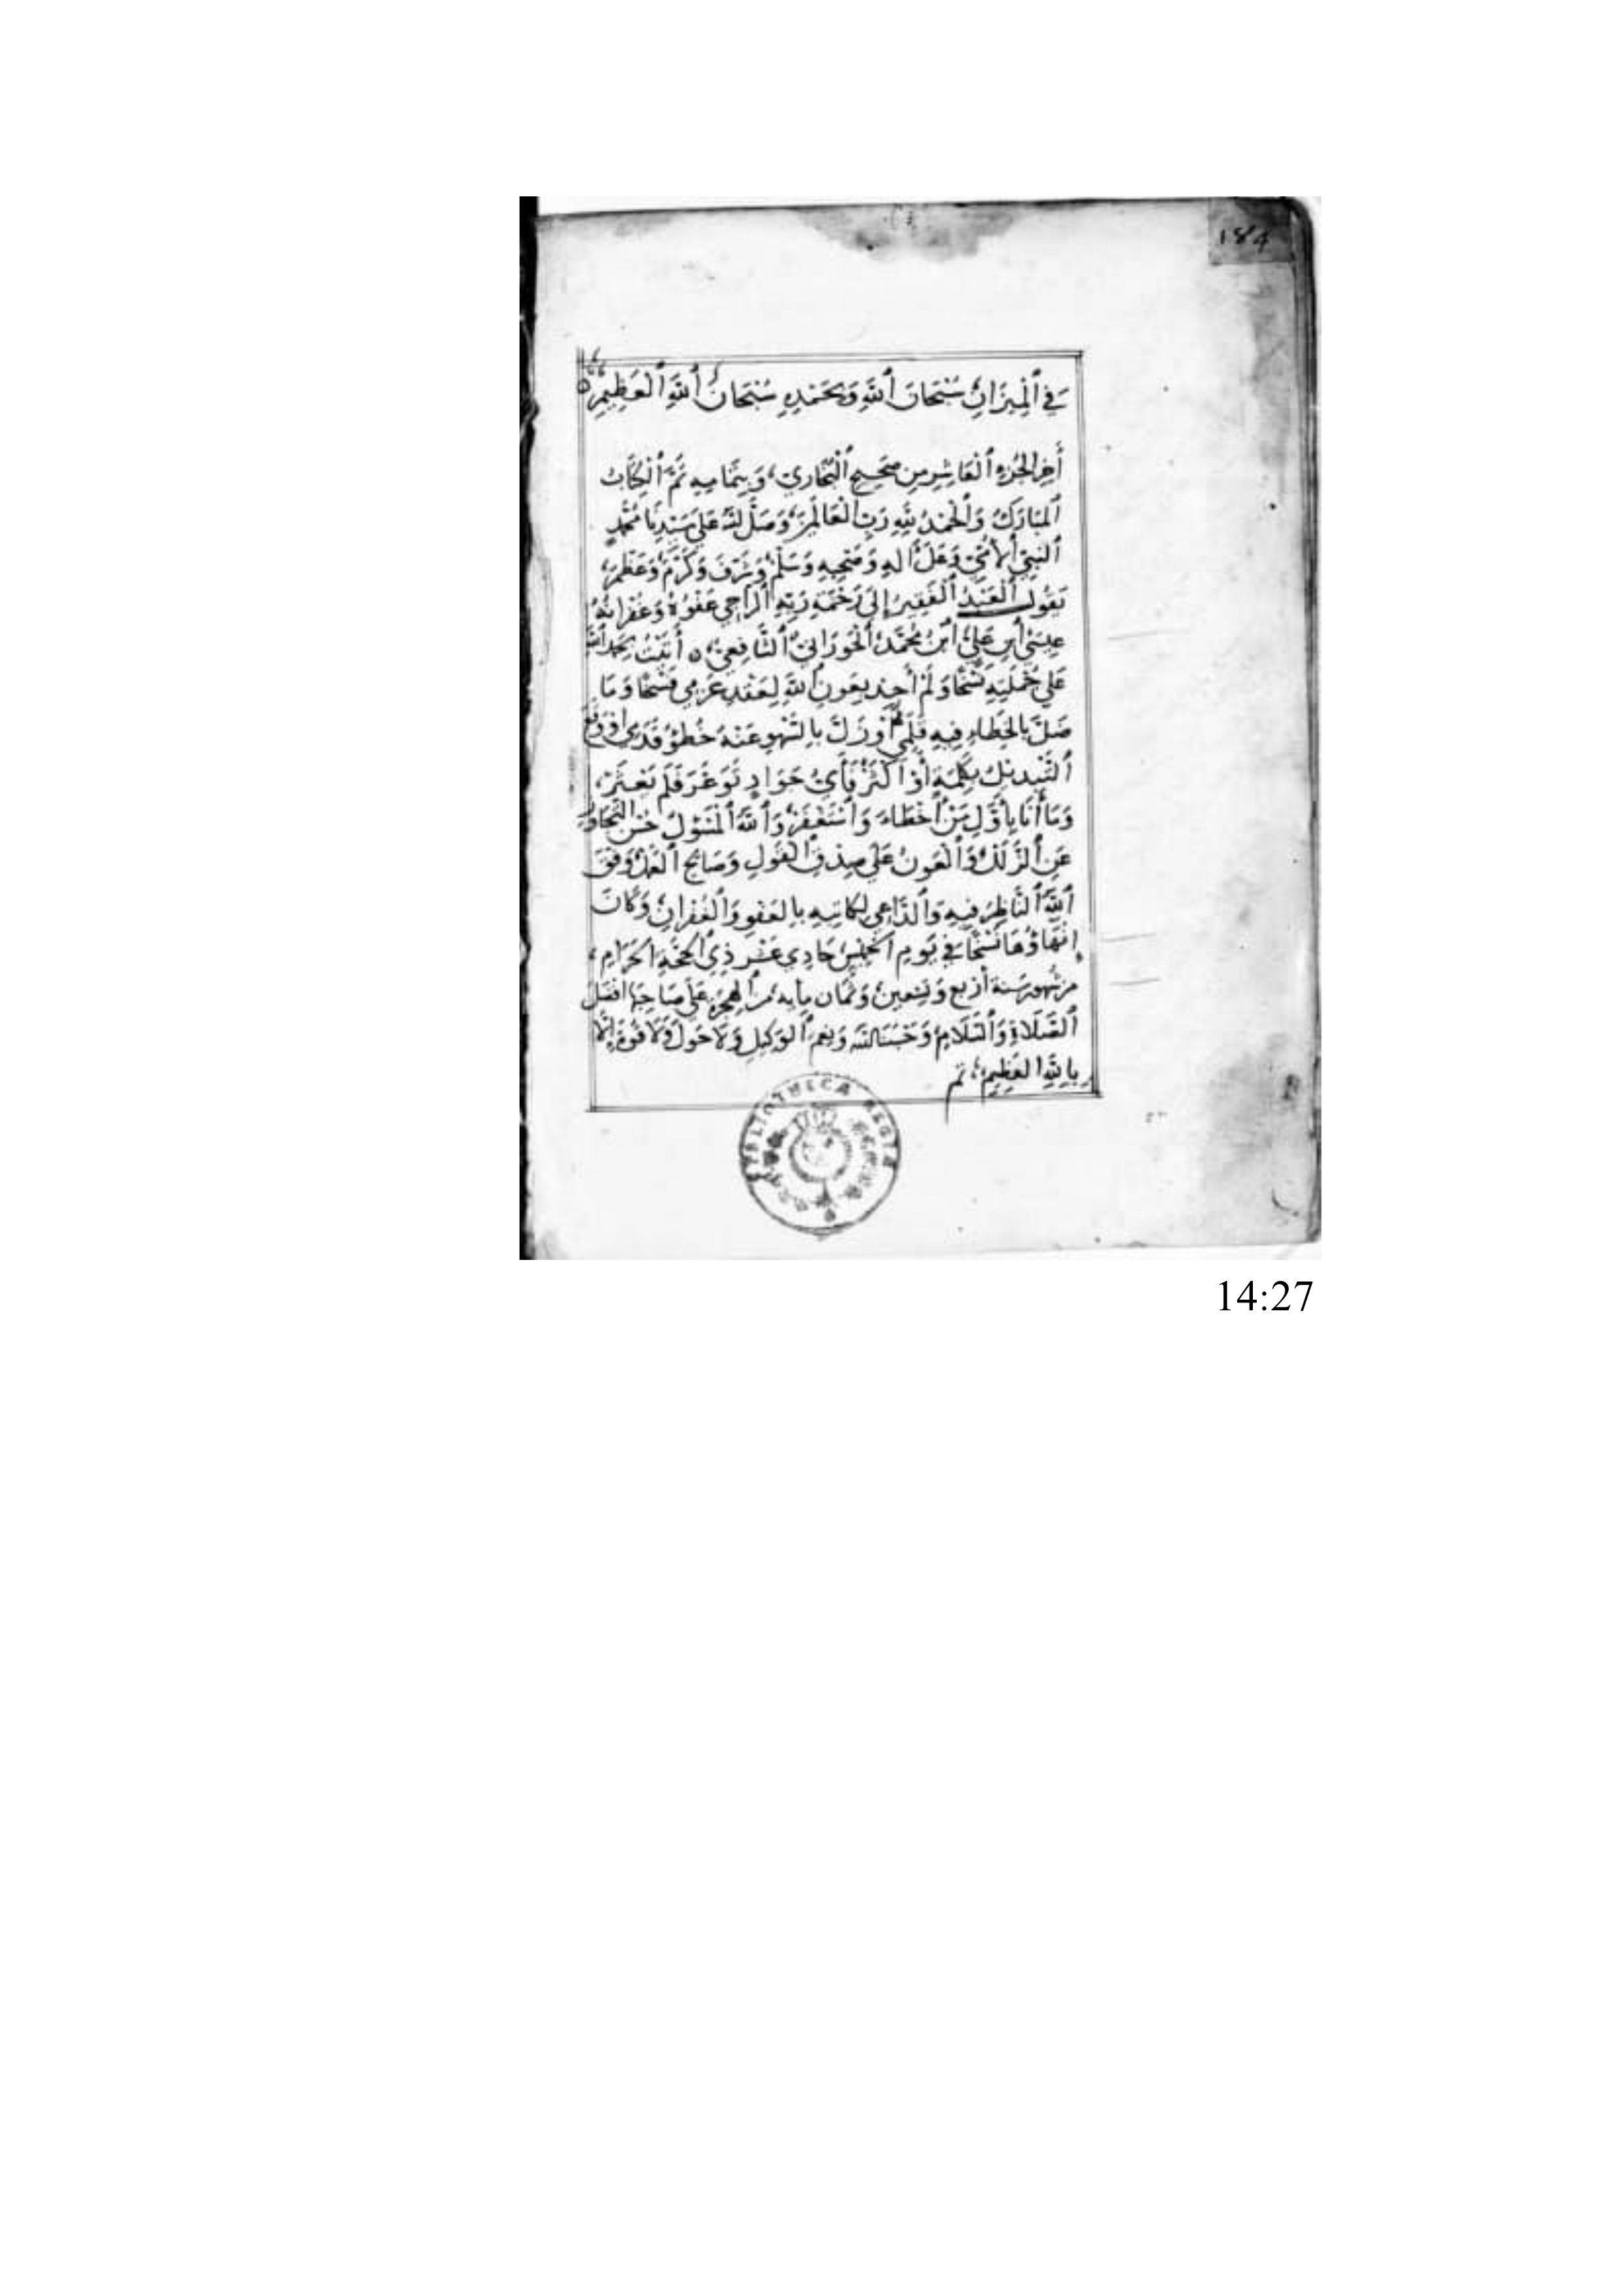 184
فِي ٱلْمِيزَانِ سُبْحَانَ ٱللَّهِ وَبِحَمْدِهِ سُبْحَانَ ٱللَّهِ ٱلْعَظِيمِ
أخِر الجُزءِ ٱلْعَاشِرِ مِن صَحِيحِ ٱلْبُخَارِي، وَبِتَمَامِهِ تَمَّ ٱلْكِتَابُ
ٱلمُبَارَكُ وَٱلْحَمْدُ لِلَّهِ رَبِّ ٱلْعَالَمِينَ وَصَلَّى ٱللَّهُ عَلَى سَيِّدِنَا مُحَمَّدٍ
ٱلنَّبِيِّ ٱلأُمِّيِّ وَعَلَى أٰلِهِ وَصَحْبِهِ وَسَلَّمَ وَشَرَّفَ وَكَرَّمَ وَعَظَّمَ،
يَقُولُ ٱلْعَبْدُ ٱلْفَقِيرُ إِلَى رَحْمَةِ رَبِّهِ ٱلرَاجِي عَفْوُهُ وَغُفْرَانَهُ
عِيسَى أبن عَلِي ٱبْن مُحَمَّد ٱلْحَوْرَانِيُّ ٱلشَّافِعِيّ، أَتَيْتُ بِحَمْدِ ٱللَّهِ
عَلَى جُمْلَتِهِ نَسْخًا وَلَمْ أَجِد بِعَونِ ٱللَّهِ لِعَقْدِ عَزمِي فَسْخًا وَمَا
ضَلَّ بِالخَطَاءِ فِيهِ قَلَمِي أَوْ زَلَّ بِالسَّهوِ عَنْهُ خُطوُ قَدَمِي اوْ وَقَعَ
ٱلتَّبْدِيلُ بِكَلِمَةٍ أَوْ أَكْثَرْ فَأَيُّ جَوَادٍ تَوَعَّرَ فَلَم يَعْثَرْ،
وَمَا أَنَا بِأَوَّلِ مَنْ أَخْطَاءَ وَٱسْتَغْفَرَ وَٱللَّهُ ٱلْمَسْؤلُ حُسْنَ ٱلتَّجَاوُزِ
عَنِ ٱلزَّلَلِ وَٱلْعَونُ عَلَى صِدْقِ ٱلقَولِ وَصَالِحِ ٱلعَمَلِ وَفَّقَ
ٱللَّهُ ٱلنَّاظِرَ فِيهِ وَٱلدَّاعِي لِكَاتِبِهِ بِالعَفْوِ وَٱلغُفْرَانِ وَكَانَ
إِنْتِهَاؤُهَا نَسْخًا فِي يَومِ ٱلخَمِيس حَادِي عَشَر ذِي ٱلحِجَّةِ ٱلحَرَامِ،
من شهور سَنَة أَرْبع وَتِسْعِينَ وَثَمَان مِايه مِنَ ٱلهِجْرَةِ عَلَى صَاحِبِهَا افْضَلُ
ٱلصَّلَاةِ وَٱلسَّلَامِ وَحَسْبُنَا ٱللَّهُ وَنِعْمَ ٱلوَكِيل وَلَا حَولَ وَلَا قُوةَ إِلَّا
بِاللَّهِ العَظِيمِ تم
BIBLIOTHECA REGIA
14:27